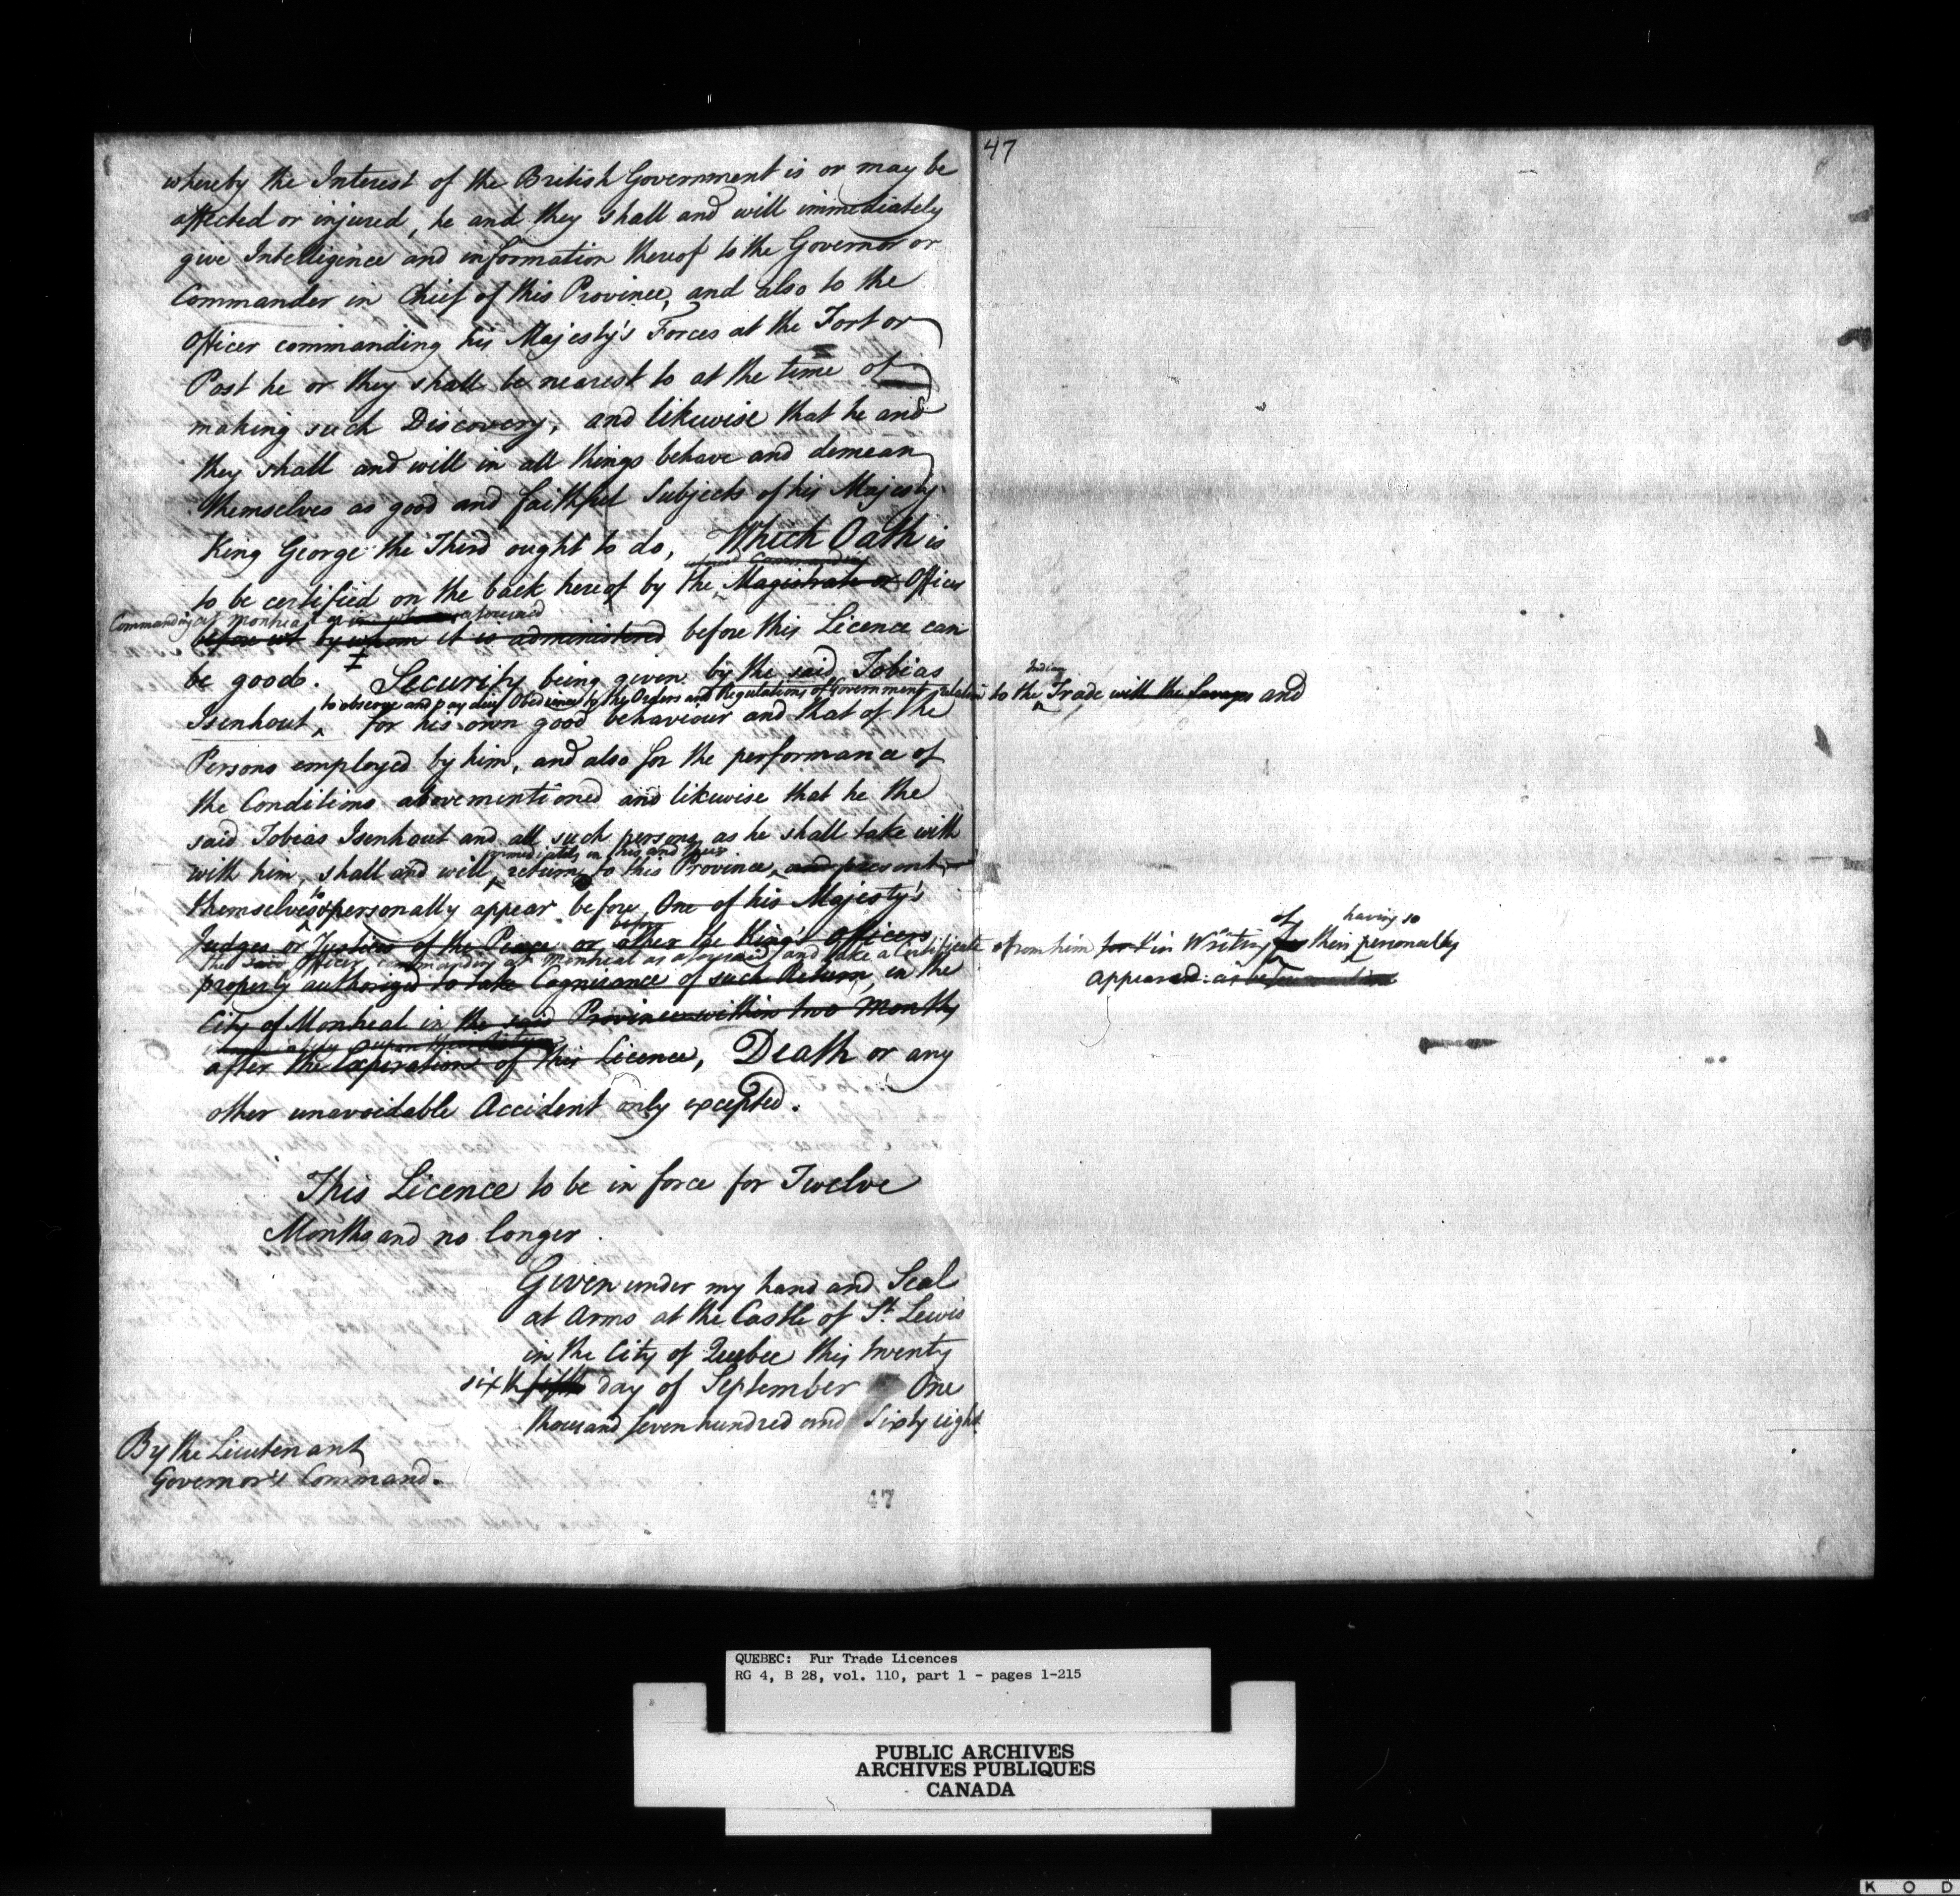 47
whereby the Interest of the British Government is or may be
affected or injured, he and they shall and will immediately
give Intelligence and information thereof to the Governor or
Commander in Chief of this Province, and also to the
Officer commanding his Majesty's Forces at the Fort or
Post he or they shall be nearest to at the time of
making such Discovery, and likewise that he and
they shall and will in all things behave and demean
themselves as good and faithful Subjects of his Majesty
King George the Third ought to do, Which Oath is
Commanding
to be certified on the back hereof by the Magistrate or Officer
Commanding at Montreal aforesaid
before by whom it is administered before this Licence can
be good. Security being given by the said Tobias
Indian
to observe and pay due Obedience to the Orders and Regulations of Government relative to the Trade with the Savages and
Isenhout, for his own good behaviour and that of the
Persons employed by him, and also for the performance of
the Conditions abovementioned and likewise that he the
said Tobias Isenhout and all such persons as he shall take with
immediately on his and their
with him, shall and will, return to this Province, and present
themselves & personally appear before One of his Majesty's
before
Judges or Justices of the Peace or other the King's officers
the said Officer commanding at Montreal as aforesaid and take a Certificate from him in Writing of their having so personally
appeared
properly authorized to take Cognizance of such Return, in the
City of Montreal in the said Province within two Months
upon their Return
after the Expiration of this Licence, Death or any
other unavoidable Accident only excepted.
This Licence to be in force for Twelve
Months and no longer.
Given under my hand and Seal
at Arms at the Castle of St. Lewis
in the City of Quebec this twenty
sixth fifth day of September One
thousand seven hundred and sixty eight
By the Lieutenant
Governor's Command.
47
QUEBEC: Fur Trade Licences
RG 4, B 28, vol. 110, part 1 - pages 1-215
PUBLIC ARCHIVES
ARCHIVES PUBLIQUES
CANADA
K O D